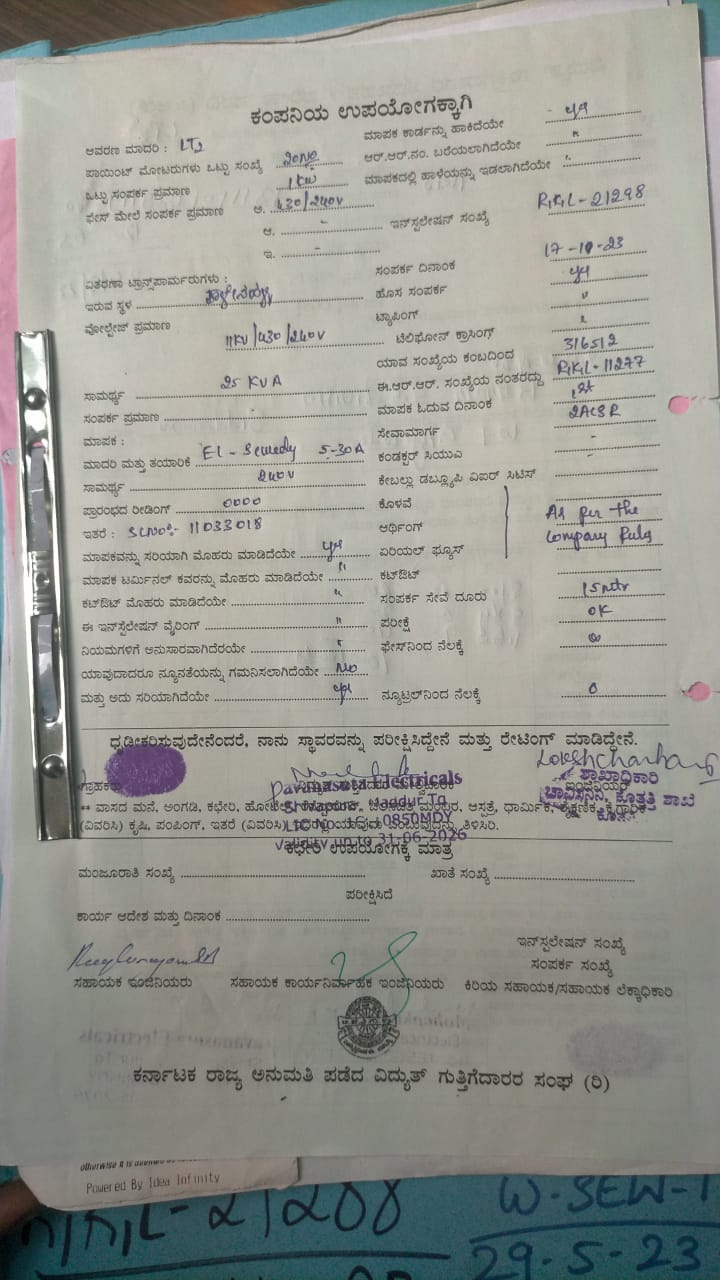 ಕಂಪನಿಯ ಉಪಯೋಗಕ್ಕಾಗಿ
ಆವರಣ ಮಾದರಿ : LT2
ಮಾಪಕ ಕಾರ್ಡನ್ನು ಹಾಕಿದೆಯೇ yes
ಪಾಯಿಂಟ್ ಮೋಟರುಗಳು ಒಟ್ಟು ಸಂಖ್ಯೆ
ಆರ್.ಆರ್.ನಂ. ಬರೆಯಲಾಗಿದೆಯೇ "
ಒಟ್ಟು ಸಂಪರ್ಕ ಪ್ರಮಾಣ 1KW
ಮಾಪಕದಲ್ಲಿ ಹಾಳೆಯನ್ನು ಇಡಲಾಗಿದೆಯೇ "
ಫೇಸ್ ಮೇಲೆ ಸಂಪರ್ಕ ಪ್ರಮಾಣ ಅ. 430/240V
ಆ. - ಇನ್‌ಸ್ಟಲೇಷನ್ ಸಂಖ್ಯೆ RKL-21298
ಇ. -
ಸಂಪರ್ಕ ದಿನಾಂಕ 17-10-23
ವಿತರಣಾ ಟ್ರಾನ್ಸ್‌ಪಾರ್ಮರುಗಳು :
ಇರುವ ಸ್ಥಳ
ಹೊಸ ಸಂಪರ್ಕ yes
ಟ್ಯಾಪಿಂಗ್ "
ವೋಲ್ಟೇಜ್ ಪ್ರಮಾಣ 11KV/430/240V
ಟೆಲಿಫೋನ್ ಕ್ರಾಸಿಂಗ್ "
ಯಾವ ಸಂಖ್ಯೆಯ ಕಂಬದಿಂದ 316512
ಸಾಮರ್ಥ್ಯ 25 KVA
ಈ.ಆರ್.ಆರ್. ಸಂಖ್ಯೆಯ ನಂತರದ್ದು RKL-11277
ಸಂಪರ್ಕ ಪ್ರಮಾಣ
ಮಾಪಕ ಓದುವ ದಿನಾಂಕ 1st
ಮಾಪಕ :
ಸೇವಾಮಾರ್ಗ 2ACSR
ಮಾದರಿ ಮತ್ತು ತಯಾರಿಕೆ 5-30A
ಕಂಡಕ್ಟರ್ ಸಿಯುಎ -
ಸಾಮರ್ಥ್ಯ 240V
ಕೇಬಲ್ಲು ಡಬ್ಲ್ಯೂಪಿ ವಿಐರ್ ಸಿಟಿಸ್ -
ಪ್ರಾರಂಭದ ರೀಡಿಂಗ್ 0000
ಕೊಳವೆ
ಇತರೆ : SLNo:- 11033018
ಅರ್ಥಿಂಗ್ As per the
ಮಾಪಕವನ್ನು ಸರಿಯಾಗಿ ಮೊಹರು ಮಾಡಿದೆಯೇ yes
ಏರಿಯಲ್ ಫ್ಯೂಸ್ Company Rules
ಮಾಪಕ ಟರ್ಮಿನಲ್ ಕವರನ್ನು ಮೊಹರು ಮಾಡಿದೆಯೇ "
ಕಟ್‌ಔಟ್
ಕಟ್‌ಔಟ್ ಮೊಹರು ಮಾಡಿದೆಯೇ "
ಸಂಪರ್ಕ ಸೇವೆ ದೂರು 15mtr
ಈ ಇನ್‌ಸ್ಟೆಲೇಷನ್ ವೈರಿಂಗ್ "
ಪರೀಕ್ಷೆ OK
ನಿಯಮಗಳಿಗೆ ಅನುಸಾರವಾಗಿದೆರಯೇ "
ಫೇಸ್‌ನಿಂದ ನೆಲಕ್ಕೆ
ಯಾವುದಾದರೂ ನ್ಯೂನತೆಯನ್ನು ಗಮನಿಸಲಾಗಿದೆಯೇ No
ಮತ್ತು ಅದು ಸರಿಯಾಗಿದೆಯೇ yes
ನ್ಯೂಟ್ರಲ್‌ನಿಂದ ನೆಲಕ್ಕೆ 0
ಧೃಡೀಕರಿಸುವುದೇನೆಂದರೆ, ನಾನು ಸ್ಥಾವರವನ್ನು ಪರೀಕ್ಷಿಸಿದ್ದೇನೆ ಮತ್ತು ರೇಟಿಂಗ್ ಮಾಡಿದ್ದೇನೆ.
Electricals
ಶಾಖಾಧಿಕಾರಿ
** ವಾಸದ ಮನೆ, ಅಂಗಡಿ, ಕಛೇರಿ,
ಆಸ್ಪತ್ರೆ, ಧಾರ್ಮಿಕ,
(ವಿವರಿಸಿ) ಕೃಷಿ, ಪಂಪಿಂಗ್, ಇತರೆ (ವಿವರಿಸಿ)
ತಿಳಿಸಿರಿ.
Validity up to 31-06-2026
ಕಛೇರಿ ಉಪಯೋಗಕ್ಕೆ ಮಾತ್ರ
ಮಂಜೂರಾತಿ ಸಂಖ್ಯೆ
ಖಾತೆ ಸಂಖ್ಯೆ
ಪರೀಕ್ಷಿಸಿದೆ
ಕಾರ್ಯ ಆದೇಶ ಮತ್ತು ದಿನಾಂಕ
ಇನ್‌ಸ್ಟಲೇಷನ್ ಸಂಖ್ಯೆ
ಸಂಪರ್ಕ ಸಂಖ್ಯೆ
ಸಹಾಯಕ ಇಂಜಿನಿಯರು
ಸಹಾಯಕ ಕಾರ್ಯನಿರ್ವಾಹಕ ಇಂಜಿನಿಯರು
ಕಿರಿಯ ಸಹಾಯಕ/ಸಹಾಯಕ ಲೆಕ್ಕಾಧಿಕಾರಿ
ಕರ್ನಾಟಕ ರಾಜ್ಯ ಅನುಮತಿ ಪಡೆದ ವಿದ್ಯುತ್ ಗುತ್ತಿಗೆದಾರರ ಸಂಘ (ರಿ)
Powered By Idea Infinity
29-5-23